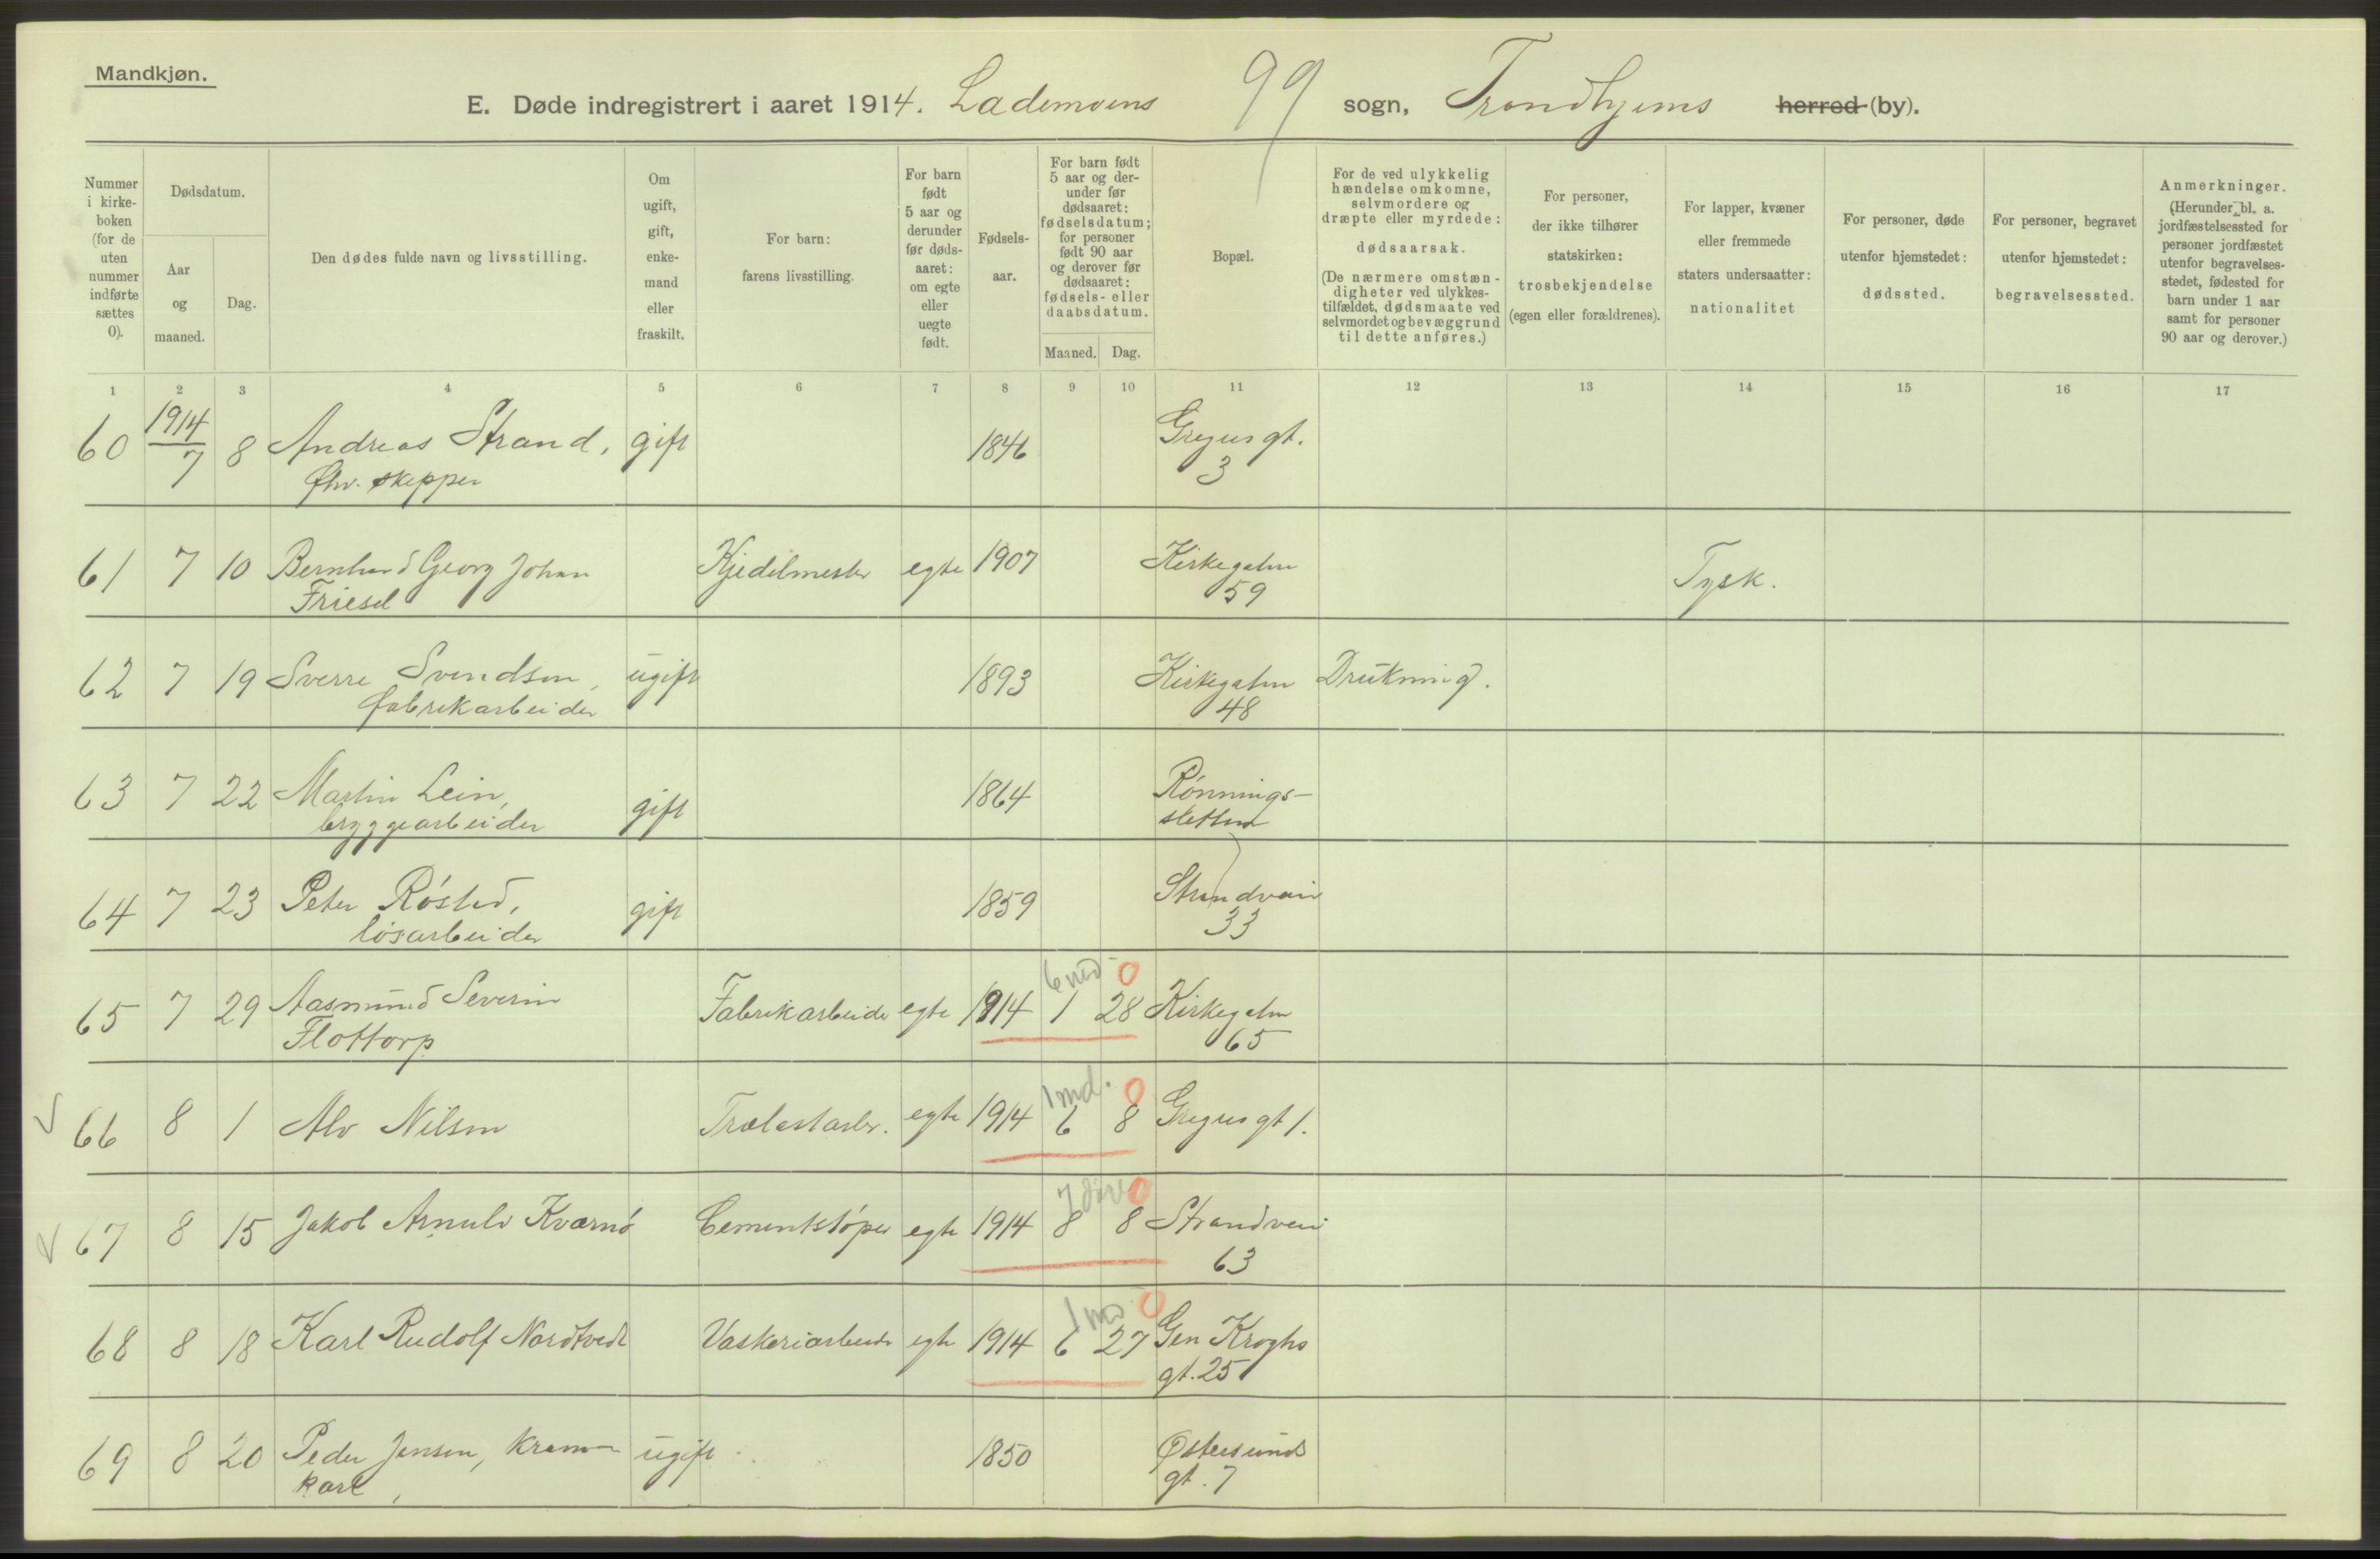 Mandkjøn.
E. Døde indregistrert i aaret 1914. Lademoens 99 sogn, Trondhjems herred (by).
Nummer i kirke-boken (for de uten nummer indførte sættes 0).
Dødsdatum.
Aar og maaned.
Dag.
Den dødes fulde navn og livsstilling.
Om ugift, gift, enke-mand eller fraskilt.
For barn: farens livsstilling.
For barn født 5 aar og derunder før døds-aaret: om egte eller uegte født.
Fødsels-aar.
For barn født 5 aar og der-under før dødsaaret: fødselsdatum; for personer født 90 aar og derover før dødsaaret: fødsels- eller daabsdatum.
Maaned. Dag.
Bopæl.
For de ved ulykkelig hændelse omkomne, selvmordere og dræpte eller myrdede: dødsaarsak. (De nærmere omstæn-digheter ved ulykkes-tilfældet, dødsmaate ved selvmordet og bevæggrund til dette anføres.)
For personer, der ikke tilhører statskirken: trosbekjendelse (egen eller forældrenes).
For lapper, kvæner eller fremmede staters undersaatter: nationalitet
For personer, døde utenfor hjemstedet: dødssted.
For personer, begravet utenfor hjemstedet: begravelsessted.
Anmerkninger. (Herunder bl. a. jordfæstelsessted for personer jordfæstet utenfor begravelses-stedet, fødested for barn under 1 aar samt for personer 90 aar og derover.)
1 2 3 4 5 6 7 8 9 10 11 12 13 14 15 16 17
60 1914 7 8 Andreas Strand, gift 1846 Gregus gt.
fhv. skipper 3
61 7 10 Bernhard Georg Johan Kjedelmester egte 1907 Kirkegaten Tysk.
Friesel 59
62 7 19 Sverre Svendsen, ugift 1893 Kirkegaten Drukning.
fabrikarbeider 48
63 7 22 Martin Lein, gift 1864 Rønnings-
bryggearbeider sletten
64 7 23 Peter Røsted, gift 1859 Strandvein
løsarbeider 33
6 md 0
65 7 29 Aasmund Severin Fabrikarbeider egte 1914 1 28 Kirkegaten
Flottorp 65
1 md. 0
66 8 1 Alv Nilsen Trælastarb. egte 1914 6 8 Gregus gt 1.
7 0
67 8 15 Jakob Arnulv Kværnø Cementstøper egte 1914 8 8 Strandvein
63
1 md 0
68 8 18 Karl Rudolf Nordtvedt Vaskeriarbeider egte 1914 6 27 Gen Kroghs
gt. 25
69 8 20 Peder Jensen, kram- ugift 1850 Østersunds
kar gt. 7